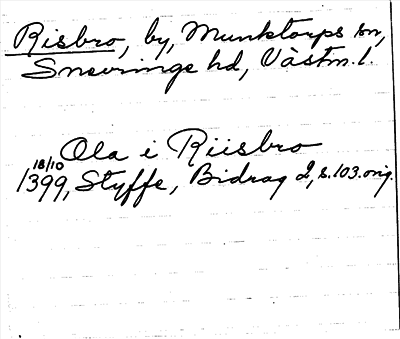 Risbro, by, Munktorps sn,
Snevringe hd, Västm. l.
Ola i Riisbro
18/10
1399, Styffe, Bidrag 2, s. 103. orig.